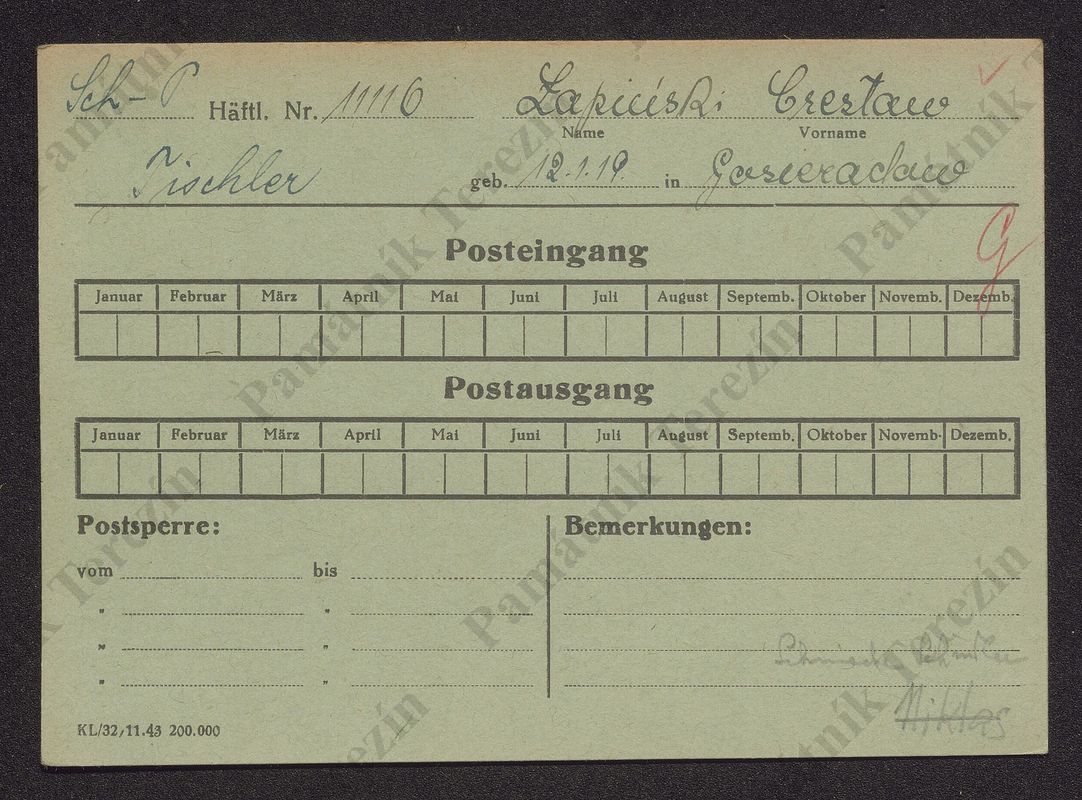 Sch-P Häftl. Nr. 11116 Łapiński Czesław
Name Vorname
Tischler geb. 12.1.19. in Gosieradow
G
Posteingang
Januar Februar März April Mai Juni Juli August Septemb. Oktober Novemb. Dezemb.
Postausgang
Januar Februar März April Mai Juni Juli August Septemb. Oktober Novemb. Dezemb.
Postsperre: Bemerkungen:
vom bis
" "
" "
" "
Niklas
KL/32,11.43 200.000
Památník Terezín